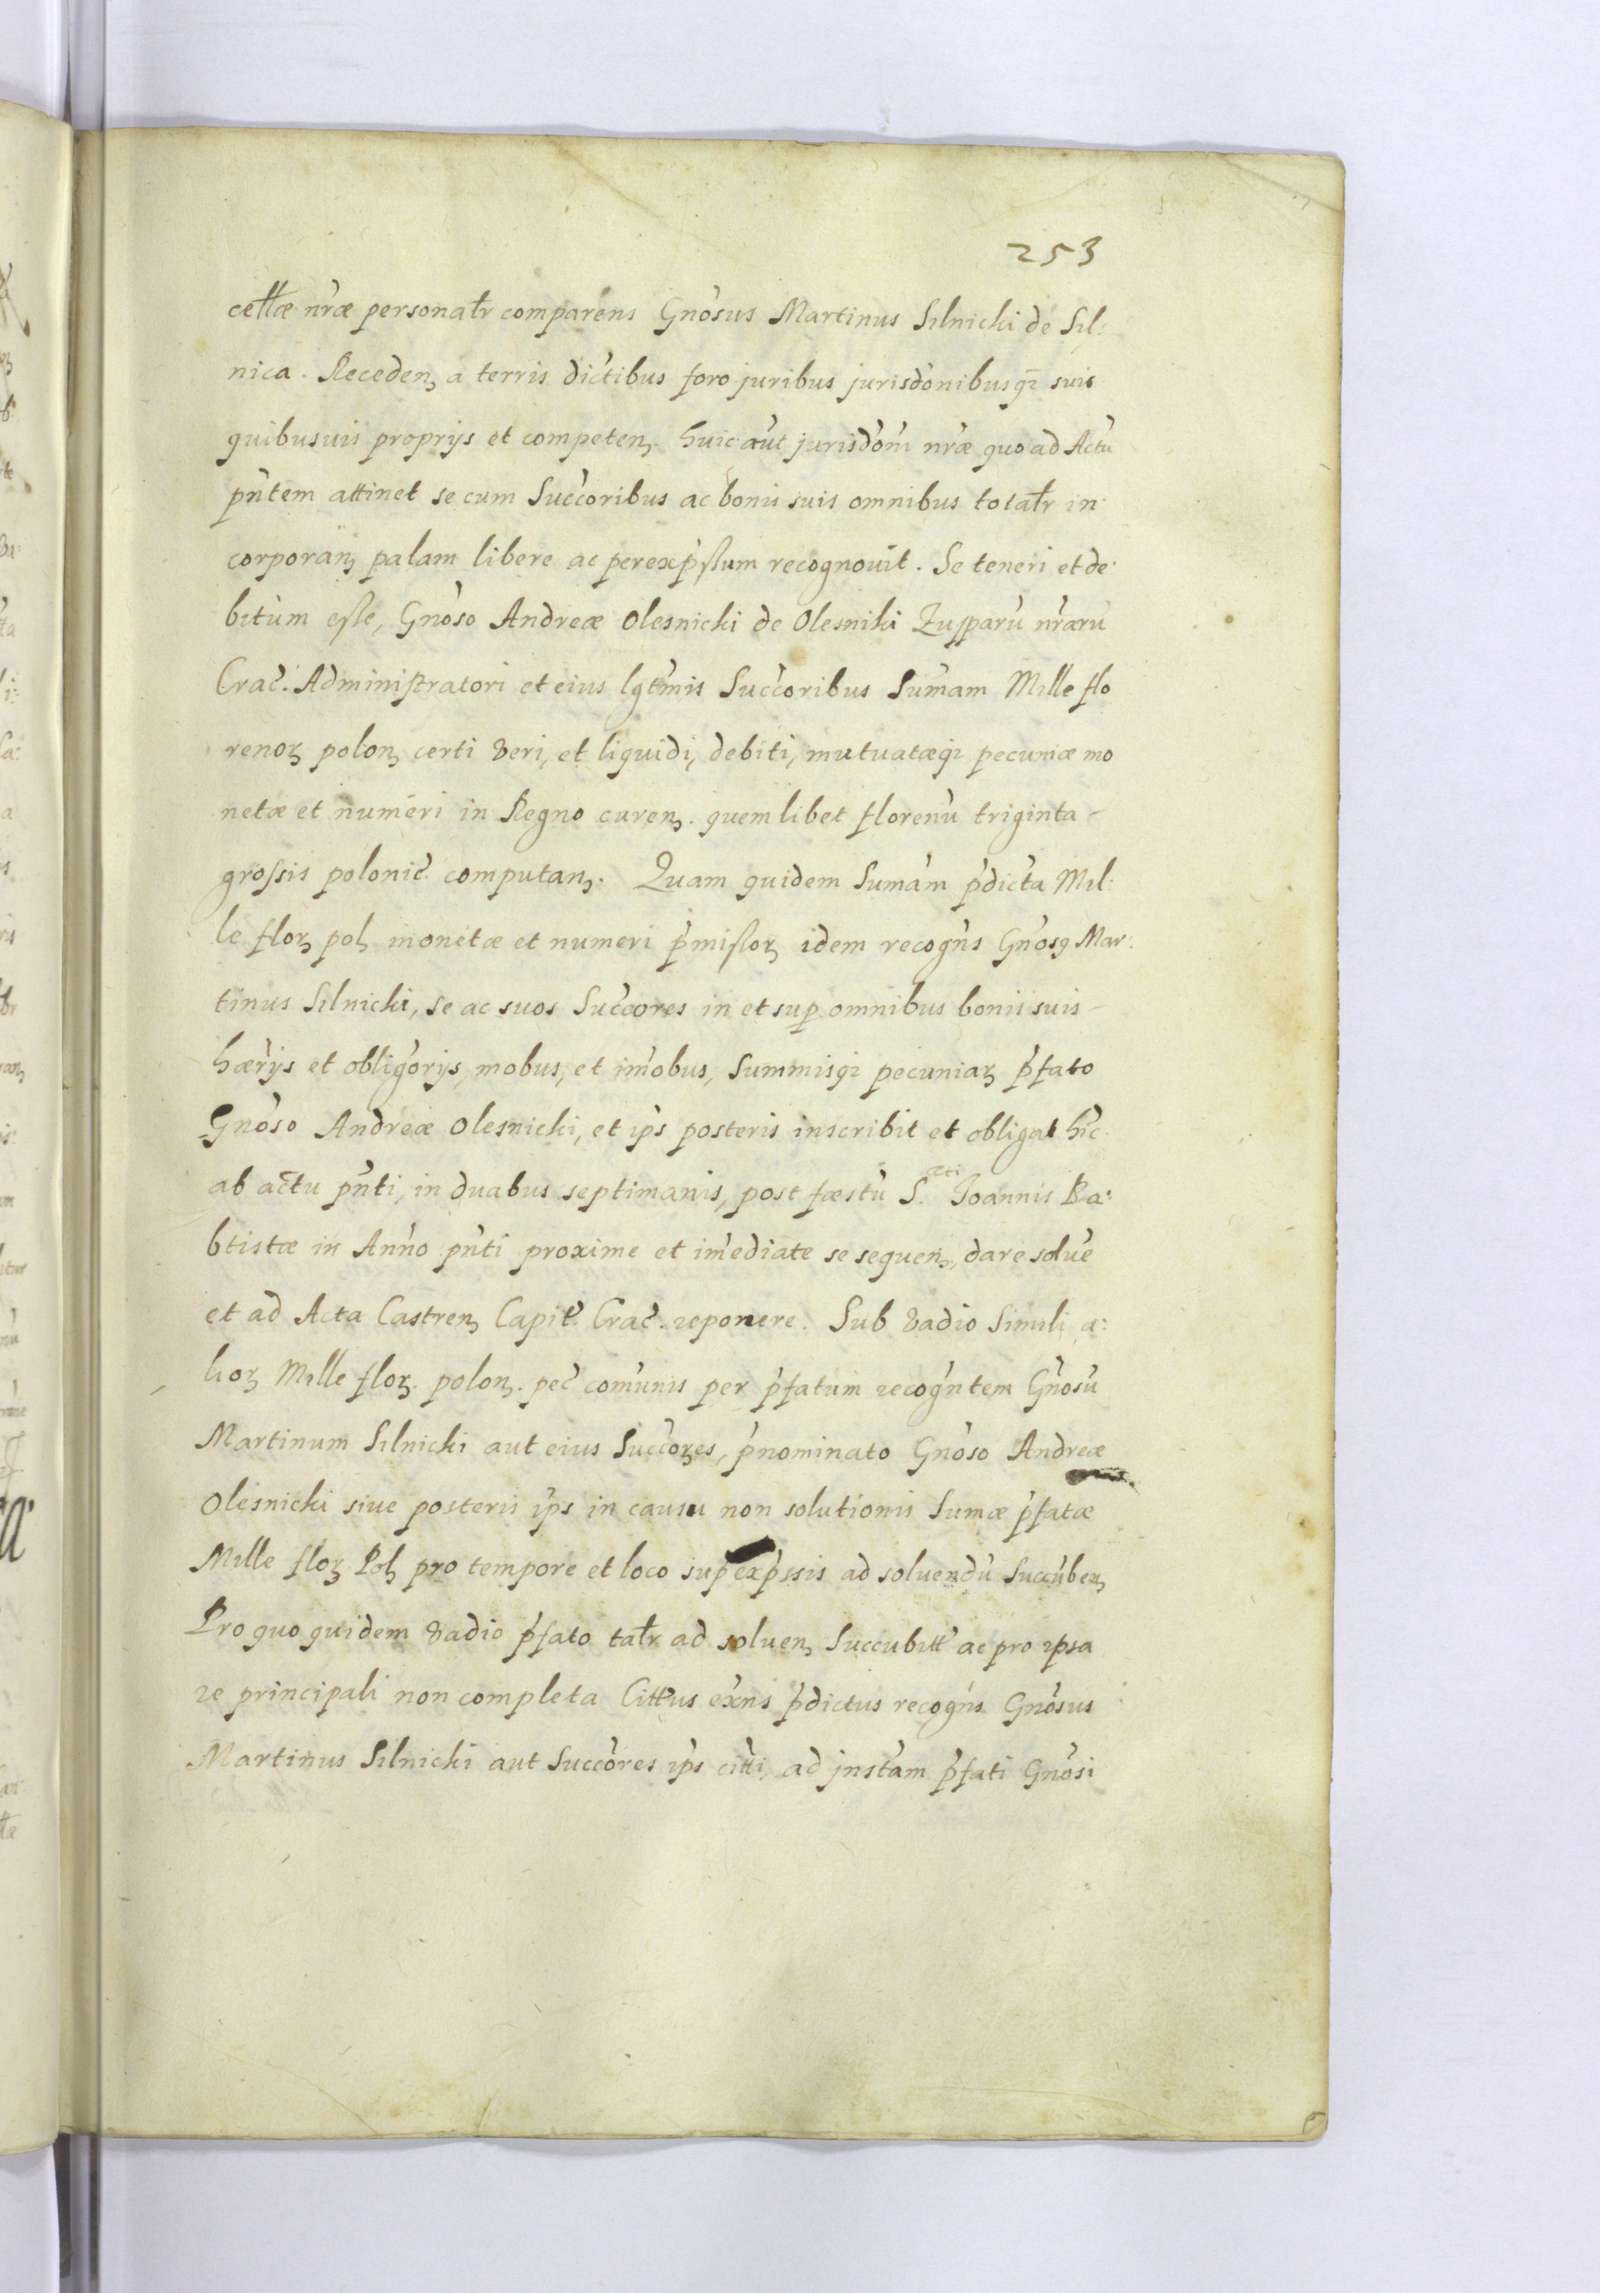 253
cellæ nræ personalr comparens Gnosus Martinus Silnicki de Sil:
nica. Receden, a terris dictibus foro juribus jurisdonibusq3 suis
quibusuis proprijs et competen, huic aut jurisdoni nræ quo ad Actu
pntem attinet se cum Succoribus ac bonis suis omnibus totalr in
corporan, palam libere ac perexpssum recognouit. Se teneri et de
bitum esse, Gnoso Andreæ Olesnicki de Olesniki Zupparu nraru
Crac. Administratori et eius lgtmis Succoribus Sumam Mille flo
renoz polon, certi veri, et liquidi, debiti, mutuatæq3 pecuniæ mo
netæ et numeri in Regno curen, quem libet florenu triginta -
grossis polonic computan,. Quam quidem Sumam pdicta Mil:
le floz pol, monetæ et numeri pmissoz idem recogns Gnos9 Mar:
tinus Silnicki, se ac suos Succores in et sup omnibus bonis suis -
hærijs et obligorijs, mobus, et imobus, Summisq3 pecuniaz pfato
Gnoso Andreæ Olesnicki, et ips posteris inscribit et obligat hic
ab actu pnti, in duabus septimanis, post fæstu S. cti Joannis Ba:
btistæ in Anno pnti proxime et imediate se sequen, dare solue
et ad Acta Castren, Capit. Crac. reponere. Sub vadio Simili a:
lioz Mille floz. polon,. pec comunis per pfatum recogntem Gnosu
Martinum Silnicki aut eius Succores, pnominato Gnoso Andreæ
Olesnicki siue posteris ips in causu non solutionis Sumæ pfatæ
Mille floz Pol, pro tempore et loco sup expssis ad soluendu Succuben,
Pro quo quidem vadio pfato talr ad soluen, Succubitt ac pro ipsa
re principali non completa Cittus exns pdictus recogns Gnosus
Martinus Silnicki aut Succores ips citti, ad jnstam pfati Gnosi